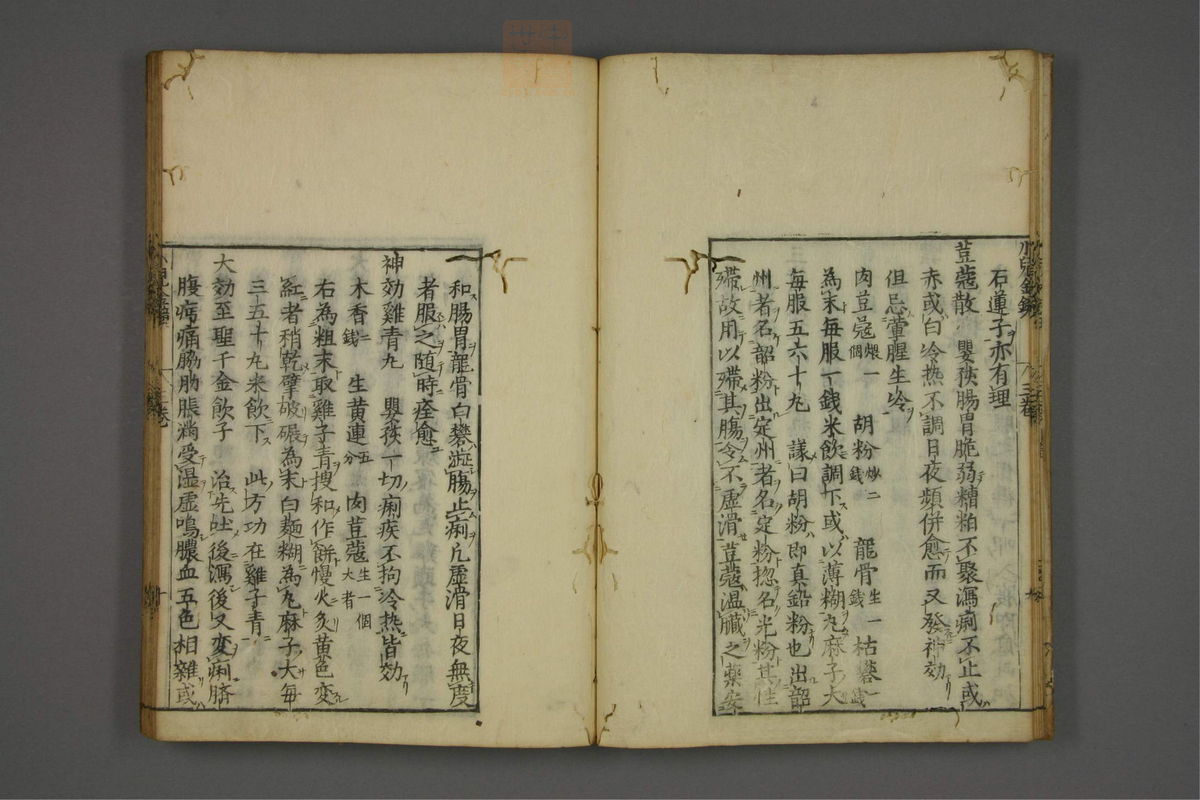 石蓮子亦有理
荳蔻散　嬰孩腸胃脆弱糟粕不聚瀉痢不止或
赤或白冷热不調日夜頻併愈而又發神効
但忌葷腥生冷
肉荳蔻煨一個　胡粉炒二錢　龍骨生一錢　枯礬一錢
為末每服一錢米飲調下或以薄糊丸麻子大
每服五六十丸　議曰胡粉即真鉛粉也出韶
州者名韶粉出定州者名定粉揔名光粉其性
殢故用以殢其腸令不虛滑荳蔻温臟之藥安
和腸胃龍骨白礬澁腸止痢凢虛滑日夜無度
者服之随時痊愈
神効雞青丸　嬰孩一切痢疾不拘冷热皆効
木香二錢　生黄連五分　肉荳蔻生一個大者
右為粗末取雞子青搜和作餅慢火炙黄色変
紅者稍乾擘破碾為末白麵糊為丸麻子大每
三五十丸米飲下　此方功在雞子青
大効至聖千金飲子　治先吐後瀉後又変痢臍
腹㽲痛脇肋脹滿受湿虛鳴膿血五色相雜或